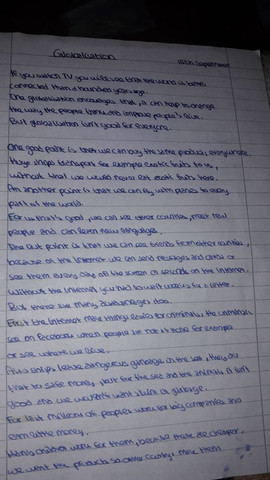 Globalisation
If you watch TV you will see that the world is better
connected than a hundred years ago.
One globalisation encourages that, it can help to change
the way the people think and improve people's live.
But globalisation isn't good for everyone.
One good point is that we can buy the same products everywhere.
Huge ships transport for example exotic fruits to us,
without that we would never eat exotic fruits here.
An another point is that we can fly with planes to every
part of the world.
For us that's good, we can see other countries, meet new
people and can learn new languages.
One last point is that we can see from other countries,
because of the Internet we can send messages and or
see them every day of the in seconds on the Internet.
Without the Internet you had to wait weeks for a letter.
But there are many disadvantages too.
First the Internet makes things easier for criminals, the criminals
see on Facebook when people are not at home for example
or see where we live.
Also ships leave dangerous garbage in the sea, they do
that to safe money, but for the sea and the animals it isn't
good and we wouldn't want fish of garbage.
For last millions of people work for big companies and
earn little money.
Many children work for them, because they are cheaper,
we want the products so other country make them